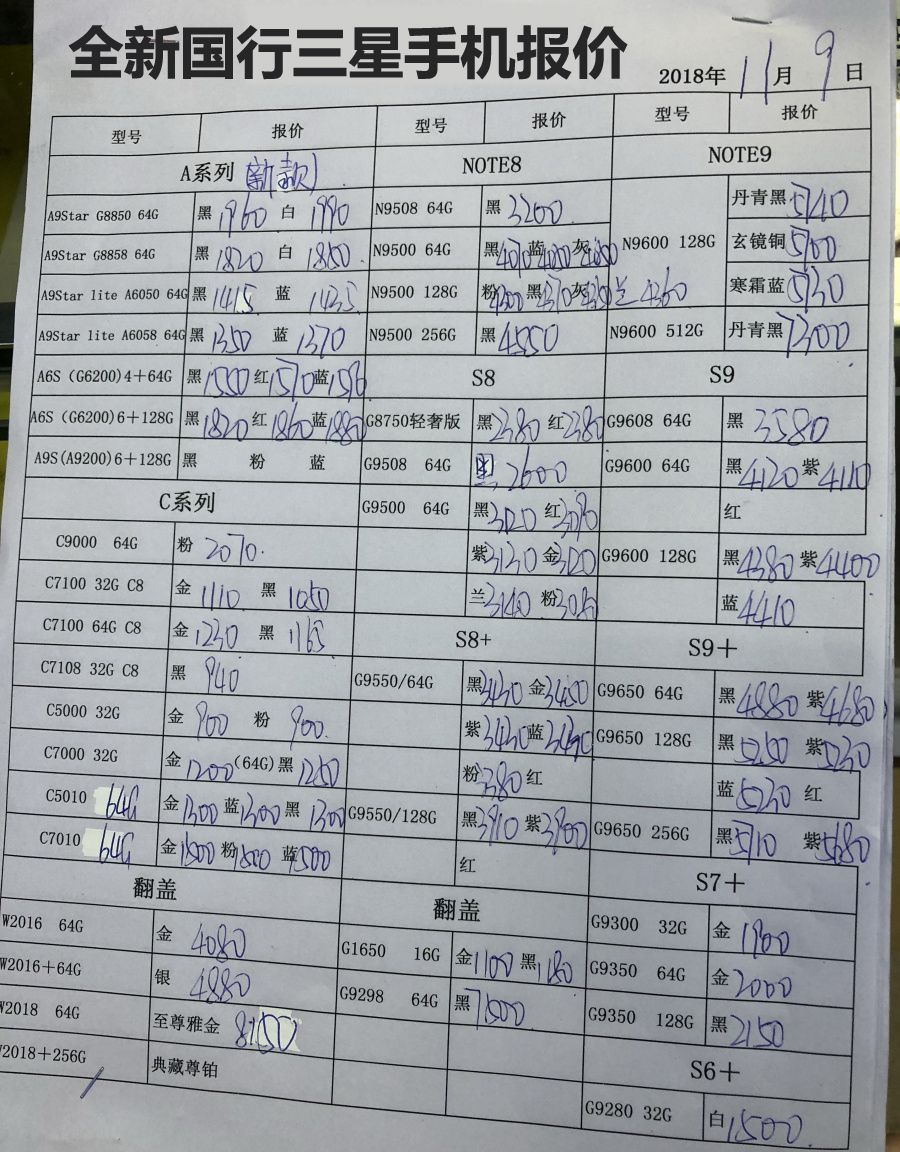 全新国行三星手机报价
2018年 11月 9日
型号 报价 型号 报价 型号 报价
A系列 (新款) NOTE8 NOTE9
A9Star G8850 64G 黑 1960 白 1990 N9508 64G 黑 3200 N9600 128G 丹青黑 5140
A9Star G8858 64G 黑 1820 白 1850 N9500 64G 黑 蓝 灰 玄镜铜 5100
A9Star lite A6050 64G 黑 1415 蓝 1435 N9500 128G 粉 4300 黑 4370 灰 兰 4360 寒霜蓝 5130
A9Star lite A6058 64G 黑 1350 蓝 1370 N9500 256G 黑 4550 N9600 512G 丹青黑 7300
A6S (G6200)4+64G 黑 1550 红 1570 蓝 S8 S9
A6S (G6200)6+128G 黑 1820 红 1860 蓝 1880 G8750轻奢版 黑 2380 红 2380 G9608 64G 黑 3580
A9S(A9200)6+128G 黑 粉 蓝 G9508 64G 黑 2600 G9600 64G 黑 4120 紫 4110
C系列 G9500 64G 黑 3120 红 3090 红
C9000 64G 粉 2070. 紫 3130 金 3120 G9600 128G 黑 4380 紫 4400
C7100 32G C8 金 1110 黑 1050 兰 3140 粉 蓝 4410
C7100 64G C8 金 1230 黑 1165 S8+ S9+
C7108 32G C8 黑 940 G9550/64G 黑 3430 金 3450 G9650 64G 黑 4880 紫 4680
C5000 32G 金 900 粉 900. 紫 3430 蓝 3490 G9650 128G 黑 5250 紫 5230
C7000 32G 金 1200 (64G) 黑 1250 粉 3380 红 蓝 5230 红
C5010 64G 金 1300 蓝 1300 黑 1300 G9550/128G 黑 3910 紫 3900 G9650 256G 黑 5710 紫 5680
C7010 64G 金 1500 粉 1500 蓝 1500 红 S7+
翻盖 翻盖 G9300 32G 金 1900
W2016 64G 金 4080 G1650 16G 金 1100 黑 1180 G9350 64G 金 2000
W2016+64G 银 4880 G9298 64G 黑 7500 G9350 128G 黑 2150
W2018 64G 至尊雅金 8150 S6+
W2018+256G 典藏尊铂 G9280 32G 白 1500